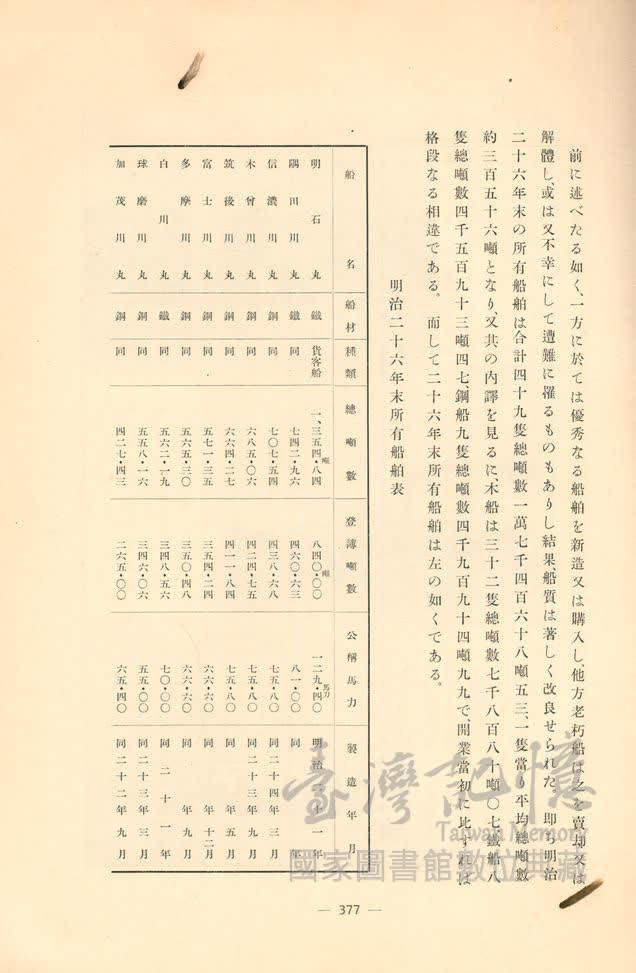 前に述べたる如く、一方に於ては優秀なる船舶を新造又は購入し、他方老朽船は之を賣却又は
解體し、或は又不幸にして遭難に罹るものもありし結果、船質は著しく改良せられた。即ち明治
二十六年末の所有船舶は合計四十九隻總噸數一萬七千四百六十八噸五三、一隻當り平均總噸數
約三百五十六噸となり、又其の內譯を見るに、木船は三十二隻總噸數七千八百八十噸〇七、鐵船八
隻總噸數四千五百九十三噸四七、鋼船九隻總噸數四千九百九十四噸九九で、開業當初に比すれば
格段なる相違である。而して二十六年末所有船舶は左の如くである。
明治二十六年末所有船舶表
船名 船材 種類 總噸數 登簿噸數 公稱馬力 製造年月
明石丸 鐵 貨客船 一、三五四・八四噸 八四〇・〇〇噸 一二九・四〇馬力 明治二十一年
隅田川丸 鐵 同 七四二・九六 四六〇・六三 八一・〇〇 同年
信濃川丸 鋼 同 七〇七・五四 四三八・六八 七五・八〇 同二十四年三月
木曾川丸 鋼 同 六八五・〇六 四二四・七五 七五・八〇 同二十三年九月
筑後川丸 鋼 同 六六四・二七 四一一・八四 七五・八〇 同年五月
富士川丸 鋼 同 五七一・三五 三五四・二四 六六・六〇 同年十二月
多摩川丸 鋼 同 五六五・三〇 三五〇・四八 六六・六〇 同年九月
白川丸 鐵 同 五六二・一九 三四八・五六 七〇・〇〇 同二十一年
球磨川丸 鋼 同 五五八・一六 三四六・〇六 五五・〇〇 同二十三年三月
加茂川丸 鋼 同 四二七・四三 二六五・〇〇 六五・四〇 同二十二年九月
臺灣記憶
Taiwan Memory
國家圖書館數位典藏
— 377 —